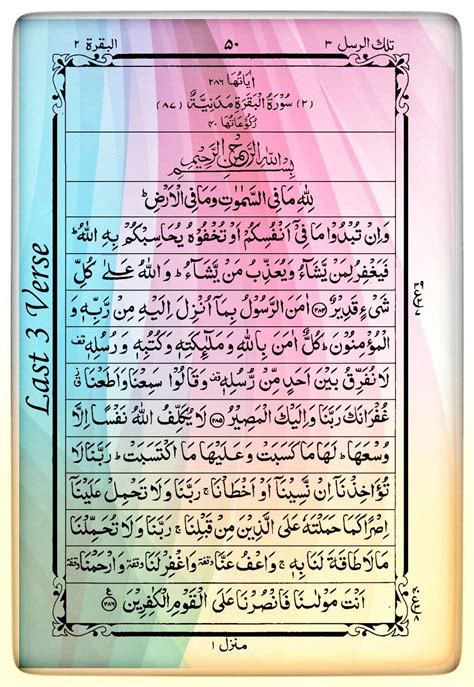 تلك الرسل ٣ ٥٠ البقرة ٢
اٰيَاتُهَا ٢٨٦
(٢) سُوْرَةُ الْبَقَرَةِ مَدَنِيَّةٌ (٨٧)
رُكُوْعَاتُهَا ٤٠
بِسْمِ اللّٰهِ الرَّحْمٰنِ الرَّحِيْمِ
لِلّٰهِ مَا فِى السَّمٰوٰتِ وَمَا فِى الْاَرْضِ ؕ
وَاِنْ تُبْدُوْا مَا فِىْۤ اَنْفُسِكُمْ اَوْ تُخْفُوْهُ يُحَاسِبْكُمْ بِهِ اللّٰهُ ؕ
فَيَغْفِرُ لِمَنْ يَّشَآءُ وَيُعَذِّبُ مَنْ يَّشَآءُ ؕ وَاللّٰهُ عَلٰى كُلِّ
شَىْءٍ قَدِيْرٌ ﴿٢٨٤﴾ اٰمَنَ الرَّسُوْلُ بِمَاۤ اُنْزِلَ اِلَيْهِ مِنْ رَّبِّهٖ وَ
الْمُؤْمِنُوْنَ ؕ كُلٌّ اٰمَنَ بِاللّٰهِ وَمَلٰٓئِكَتِهٖ وَكُتُبِهٖ وَرُسُلِهٖ قف
لَا نُفَرِّقُ بَيْنَ اَحَدٍ مِّنْ رُّسُلِهٖ قف وَقَالُوْا سَمِعْنَا وَاَطَعْنَا ز
غُفْرَانَكَ رَبَّنَا وَاِلَيْكَ الْمَصِيْرُ ﴿٢٨٥﴾ لَا يُكَلِّفُ اللّٰهُ نَفْسًا اِلَّا
وُسْعَهَا ؕ لَهَا مَا كَسَبَتْ وَعَلَيْهَا مَا اكْتَسَبَتْ ؕ رَبَّنَا لَا
تُؤَاخِذْنَاۤ اِنْ نَّسِيْنَاۤ اَوْ اَخْطَاْنَا ۚ رَبَّنَا وَلَا تَحْمِلْ عَلَيْنَاۤ
اِصْرًا كَمَا حَمَلْتَهٗ عَلَى الَّذِيْنَ مِنْ قَبْلِنَا ۚ رَبَّنَا وَلَا تُحَمِّلْنَا
مَا لَا طَاقَةَ لَنَا بِهٖ ۚ وَاعْفُ عَنَّا وقفة وَاغْفِرْ لَنَا وقفة وَارْحَمْنَا وقفة
اَنْتَ مَوْلٰىنَا فَانْصُرْنَا عَلَى الْقَوْمِ الْكٰفِرِيْنَ ﴿٢٨٦﴾ ع
منزل ١
Last 3 Verse